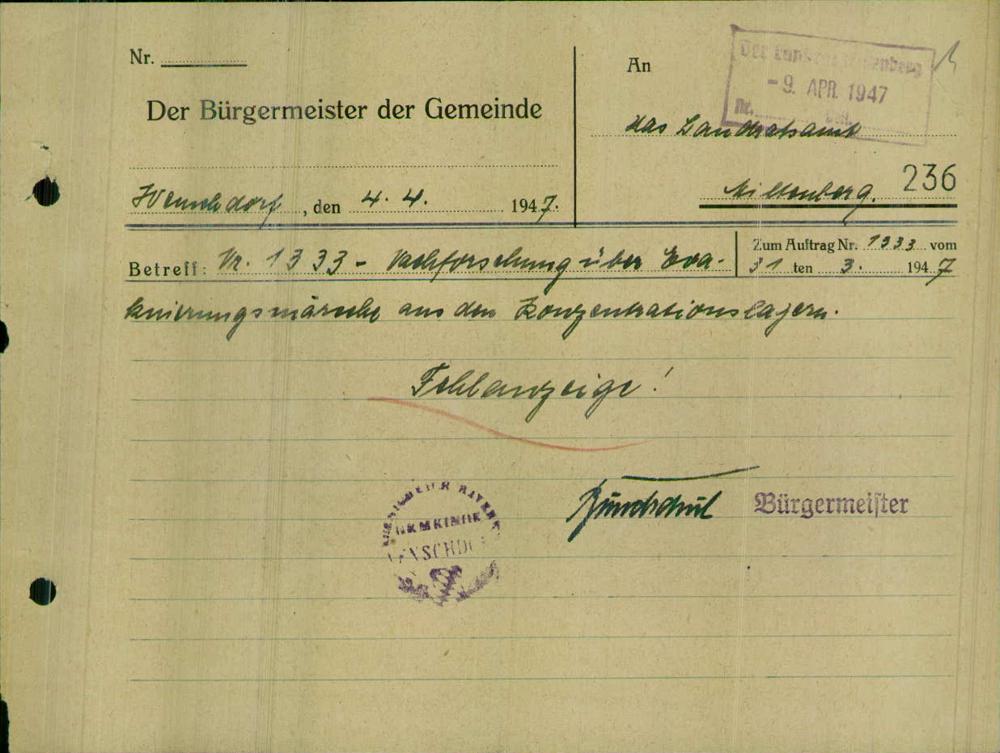 Nr.
Der Bürgermeister der Gemeinde
Wenschdorf, den 4. 4. 1947.
An
das Landratsamt
Miltenberg.
236
Der Landrat Miltenberg
- 9. APR. 1947
Nr.
Betreff: Nr. 1333 - Nachforschung über Eva-
Zum Auftrag Nr. 1333 vom
31 ten 3. 1947
kuierungsmärsche aus den Konzentrationslagern.
Fehlanzeige!
Bürgermeister
BAYERN
GEMEINDE
WENSCHDORF